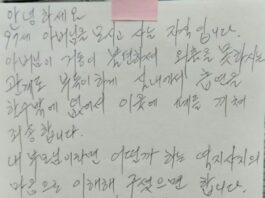 안녕하세요
97세 아버님을 모시고 사는 자식입니다.
아버님이 거동이 불편하셔서 외출을 못하시는
관계로 부득이하게 실내에서 흡연을
할수밖에 없어서 이곳에 폐를 끼쳐
죄송합니다.
내 부모님이라면 어떨까 하는 역지사지의
마음으로 이해해 주셨으면 합니다.